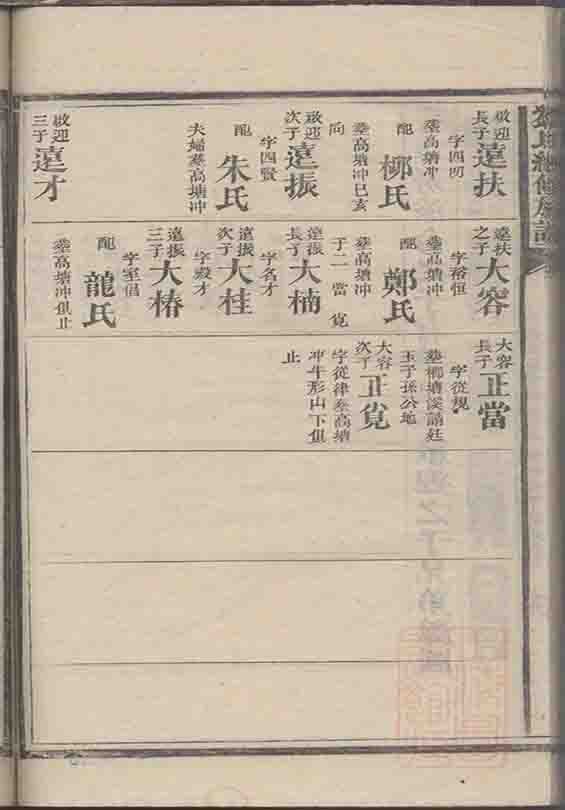 啟迎
長子
遠扶
字四
葬高塘冲
配
柳氏
葬高塘冲巳亥
向
啟迎
次子
遠振
字四賢
配
朱氏
夫婦葬高塘冲
啟迎
三子
遠才
遠扶
之子
大容
字裕恒
葬高塘冲
配
鄭氏
葬高塘冲
子二當 覓
遠振
長子
大楠
字名才
遠振
次子
大桂
字殿才
遠振
三子
大椿
字室倡
配
龍氏
葬高塘冲俱止
大容
長子
正當
字從規
葬柳塘溪請廷
玉子孫公地
大容
次子
正覓
字從律葬高塘
冲牛形山下俱
止
氏續修族譜